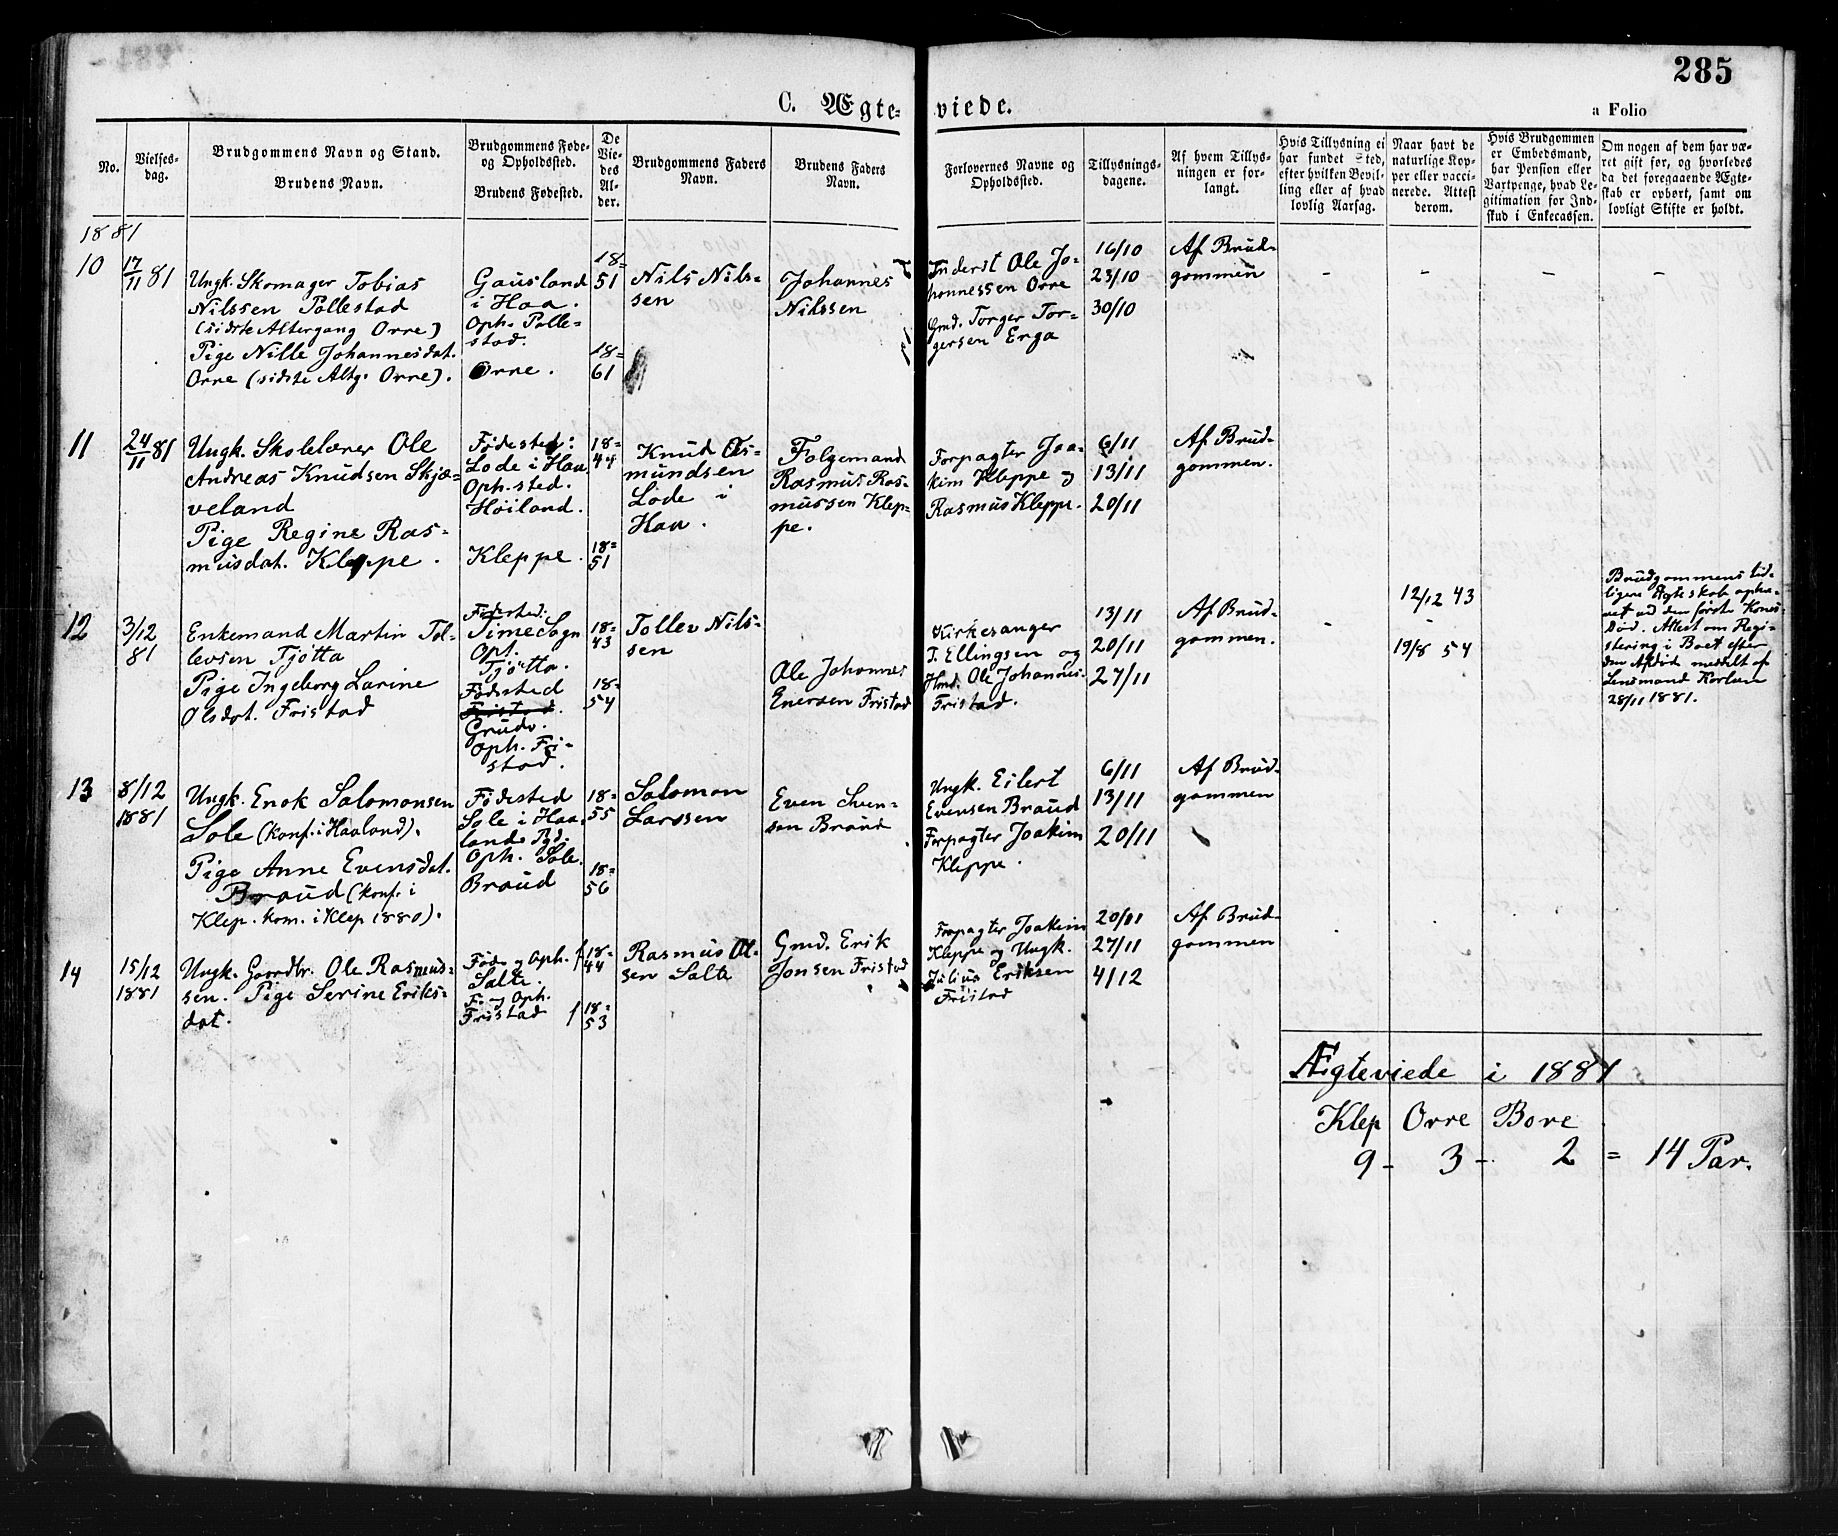 285
C. Ægte-viede.
a Folio
No.
Vielses-
dag.
Brudgommens Navn og Stand.
Brudens Navn.
Brudgommens Føde-
og Opholdssted.
Brudens Fødested.
De
Vie-
des
Al-
der.
Brudgommens Faders
Navn.
Brudens Faders
Navn.
Forlovernes Navne og
Opholdssted.
Tillysnings-
dagene.
Af hvem Tillys-
ningen er for-
langt.
Hvis Tillysning ei
har fundet Sted,
efter hvilken Bevil-
ling eller af hvad
lovlig Aarsag.
Naar havt de
naturlige Kop-
per eller vacci-
nerede. Attest
derom.
Hvis Brudgommen
er Embedsmand,
har Pension eller
Vartpenge, hvad Le-
gitimation for Ind-
skud i Enkecassen.
Om nogen af dem har væ-
ret gift før, og hvorledes
da det foregaaende Ægte-
skab er ophørt, samt om
lovligt Skifte er holdt.
1881
10
17/11 81
Ungk. Skomager Tobias
Nilssen Pollestad
(sidste Altergang Orre)
Pige Nille Johannesdat.
Orre (sidste Altg. Orre).
Gausland
i Haa.
Oph. Polle-
stad.
Orre.
18-
51
18-
61
Nils Nils-
sen
Johannes
Nilssen
Inderst Ole Jo-
hannessen Orre
Gmd. Torger Tor-
gersen Erga
16/10
23/10
30/10
Af Brud-
gommen
- - - -
11
24/11 81
Ungk. Skolelærer Ole
Andreas Knudsen Skjæ-
veland
Pige Regine Ras-
musdat. Kleppe.
Fødested:
Lode i Haa
Oph.sted.
Höiland.
Kleppe.
18-
44
18-
51
Knud As-
mundsen
Lode i
Haa.
Folgemand
Rasmus Ras-
mussen Klep-
pe.
Forpagter Joa-
kim Kleppe og
Rasmus Kleppe.
6/11
13/11
20/11
Af Brud-
gommen.
12
3/12
81
Enkemand Martin Tol-
levsen Tjötta
Pige Ingeborg Larine
Olsdat. Fristad
Fødested:
Time Sogn
Oph.
Tjötta.
Fødested
Fristad.
Grude.
Oph. Fri-
stad.
18-
43
18-
54
Tollev Nils-
sen
Ole Johannes
Enersen Fristad
Kirkesanger
T. Ellingsen og
Gmd. Ole Johannes-
Fristad.
13/11
20/11
27/11
Af Brud-
gommen.
12/12 43
-
19/8 54
Brudgommens tid-
ligere Ægteskab ophæ-
vet ved den første Kones
Död. Attest om Regi-
stering i Boet efter
den Afdöde meddelt af
Lensmand
28/11 1881.
13
8/12
1881
Ungk. Enok Salomonsen
Sole (konf. i Haaland).
Pige Anne Evensdat.
Braud (konf. i
Klep. kom. i Klep 1880).
Fødested
Sole i Haa-
lands Pgd.
Oph. Sole.
Braud
18-
55
18-
56
Salomon
Larssen
Even Sven-
sen Braud
Ungk. Eilert
Evensen Braud
Forpagter Joakim
Kleppe.
6/11
13/11
20/11
Af Brud-
gommen
14
15/12
1881
Ungk. Gaardbr. Ole Rasmus-
sen. Pige Serine Eriks-
dat.
Føde og Oph.
Salte
F. og Oph.
Fristad
18-
44
18-
53
Rasmus Ol-
sen Salte
Gmd. Erik
Jonsen Fristad
Forpagter Joakim
Kleppe og Ungk.
Julius Eriksen
Fristad
20/11
27/11
4/12
Af Brud-
gommen
Ægteviede i 1881
Klep Orre Bore
9 - 3 - 2 = 14 Par.